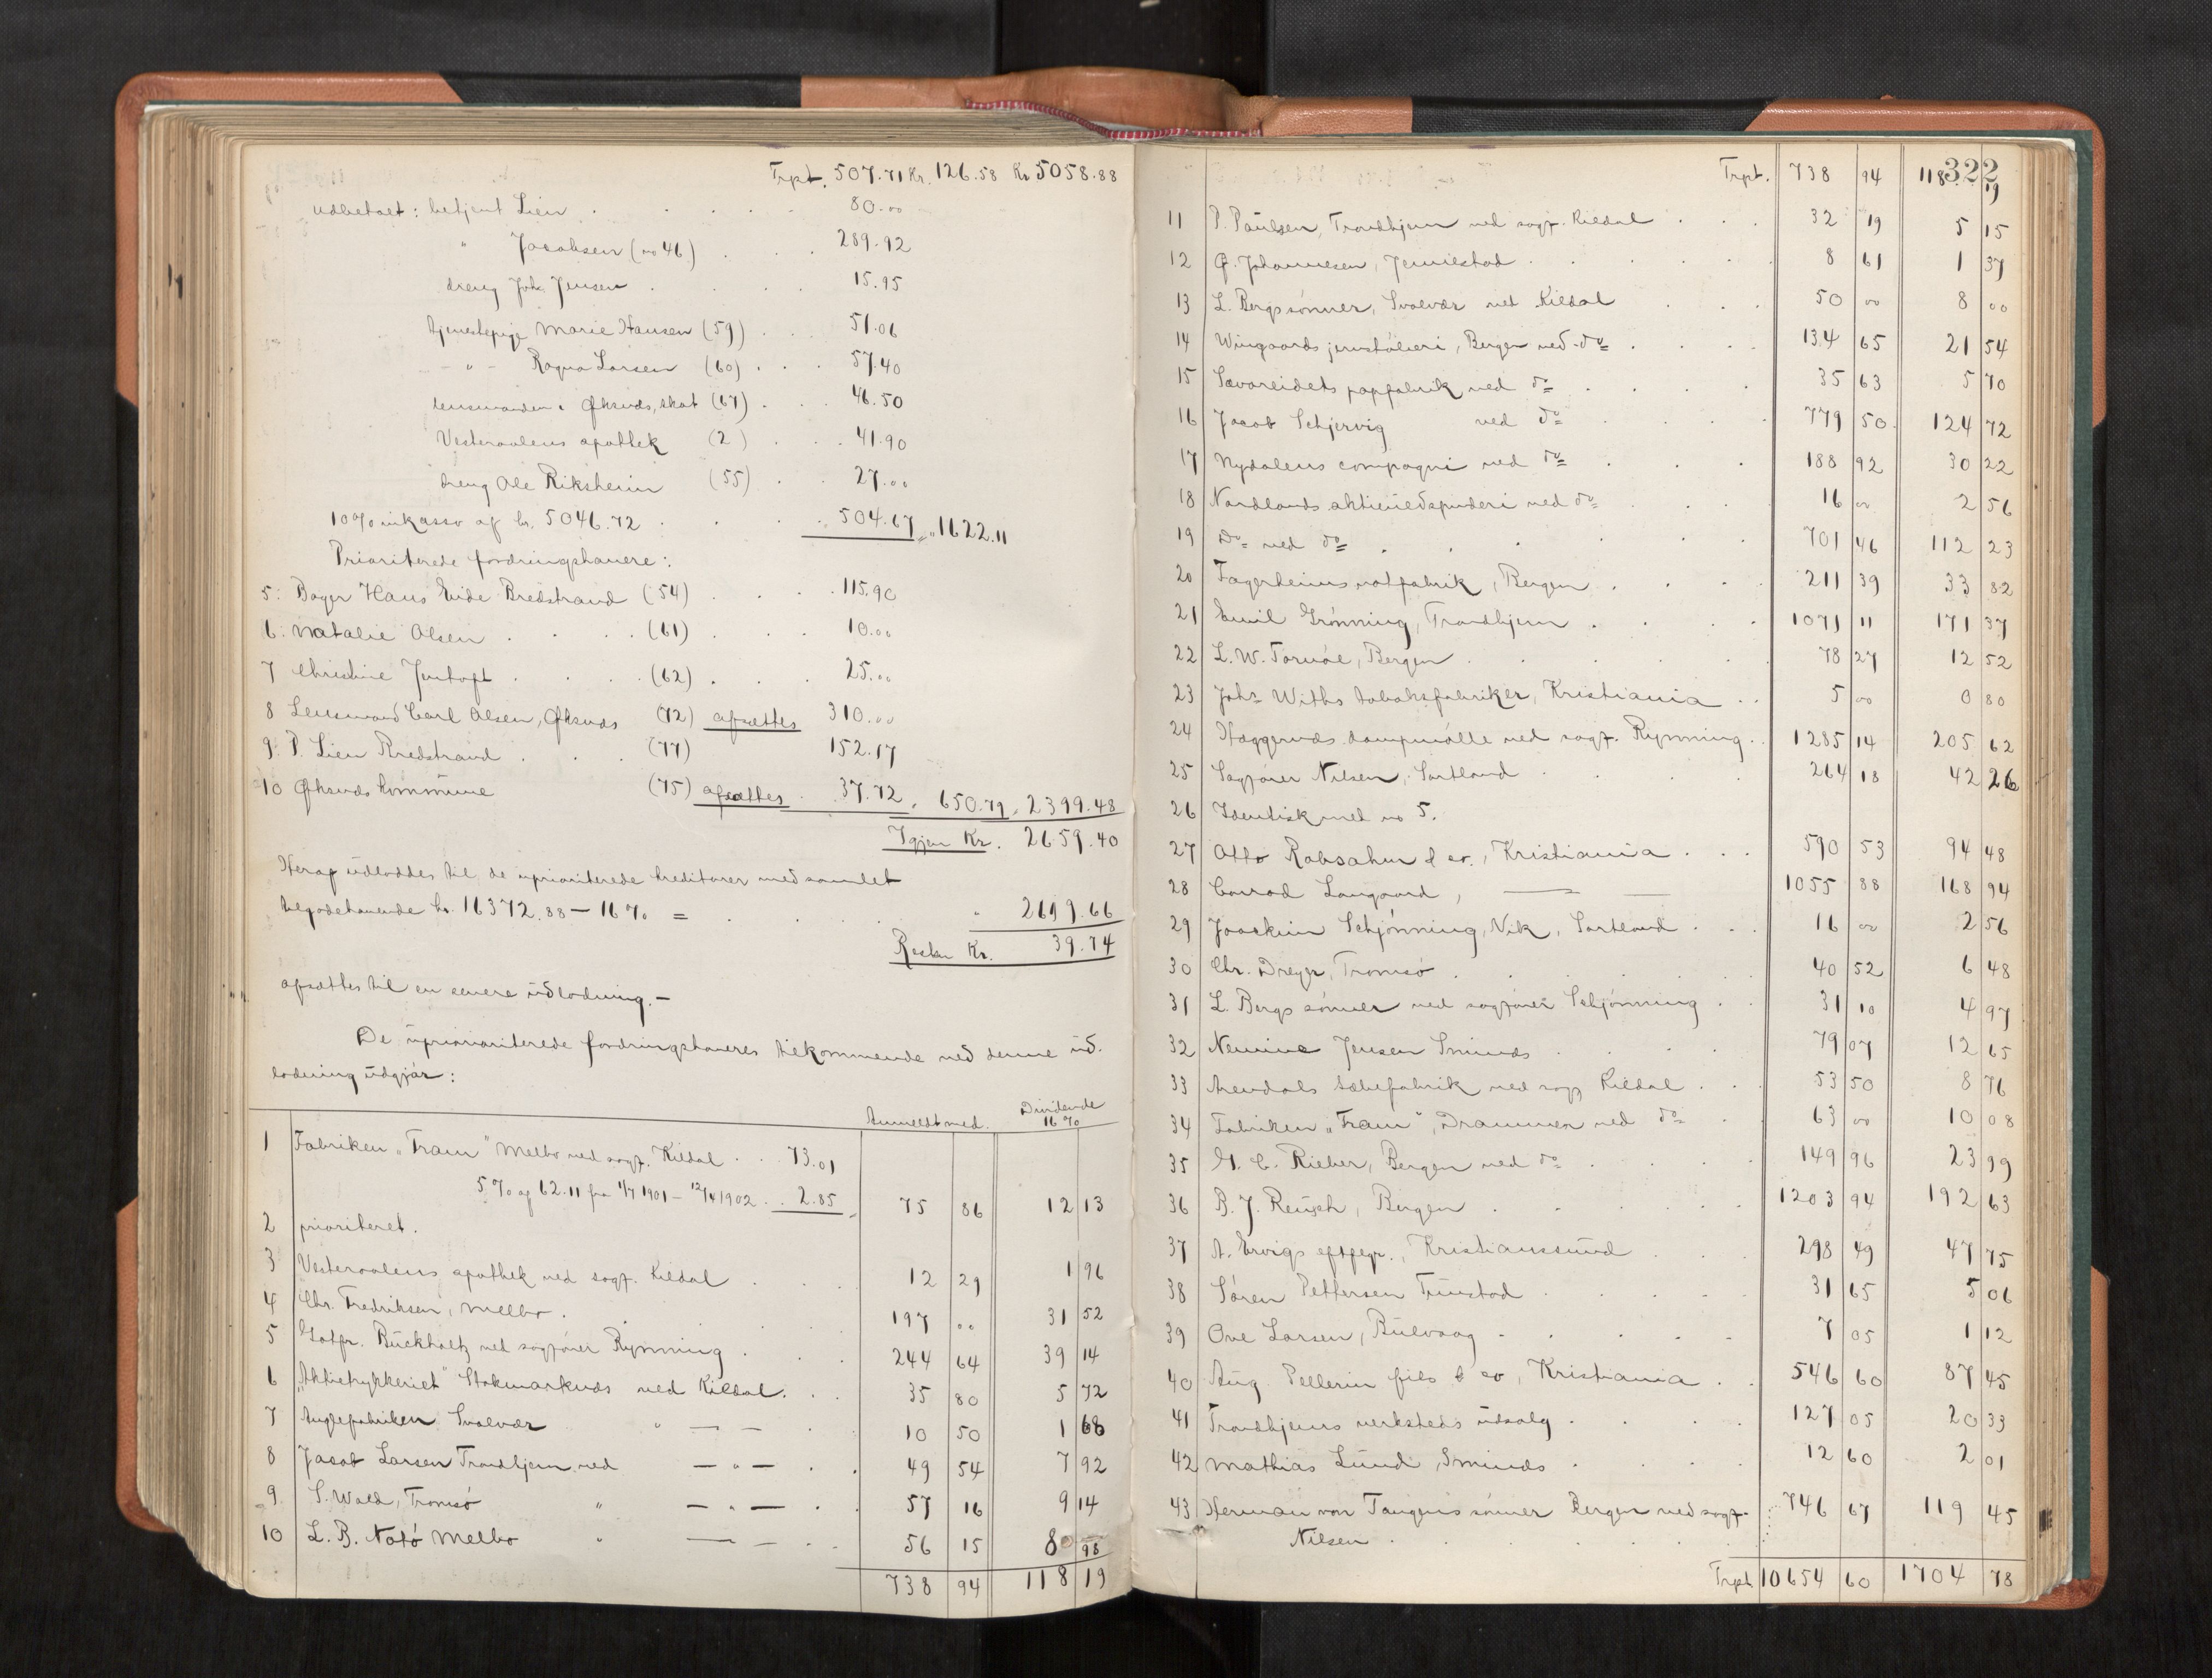 Trpt. 507.71 Kr. 126.58 Kr 5058.88
udbetalt: betjent Lien 80.00
" Jacobsen (no 46) 289.92
dreng Joh. Jensen 15.95
tjenestepige Marie Hansen (59) 51.06
- " - Ragna Larsen (60) 57.40
lensmanden i Øksnæs, skat (67) 46.50
Vesteraalens apothek (2) 41.90
dreng Ole Riksheim (55) 27.00
10% inkasso af kr. 5046.72 504.67 = " 1622.11
Prioriterede fordringshavere:
5: Bager Hans Eide Bredstrand (54) 115.90
6: Natalie Olsen (61) 10.00
7 Christine Jentoft (62) 25.00
8 Lensmand Carl Olsen, Øksnæs (72) afsættes 310.00
9: P. Lien Bredstrand (77) 152.17
10 Øksnæs kommune (75) afsættes 37.72 " 650.79 " 2399.48
Igjen Kr. 2659.40
Heraf udloddes til de uprioriterede kreditorer med samlet
tilgodehavende kr. 16372.88 – 16% = " 2699.66
Resten Kr. 39.74
afsættes til en senere udlodning. –
De uprioriterede fordringshaveres tilkommende ved denne ud-
lodning udgjør:
Anmeldt med. Dividende 16%
1 Fabriken "Fram" Melbo ved sagf. Kildal 73.01
5% af 62.11 fra 1/7 1901 – 12/4 1902 2.85 = 75 86 12 13
2 prioriteret.
3 Vesteraalens apothek ved sagf. Kildal 12 29 1 96
4 Chr. Fredriksen, Melbo. 197 00 31 52
5 Gotfr. Buckholtz ved sagfører Rynning 244 64 39 14
6 "Aktietrykkeriet" Stokmarknæs ved Kildal. 35 80 5 72
7 Anglefabriken Svolvær " — — 10 50 1 68
8 Jacob Larsen Trondhjem ved — " — 49 54 7 92
9 S. Wald, Tromsø " — " — 57 16 9 14
10 L. B. Natø Melbo " — — 56 15 8 98
738 94 118 19
322
Trpt. 738 94 118 19
11 P. Paulsen, Trondhjem ved sagf. Kildal 32 19 5 15
12 O. Johannesen, Jennestad 8 61 1 37
13 L. Bergs sønner, Svolvær ved Kildal 50 00 8 00
14 Wingaards jernstøberi, Bergen ved do 134 65 21 54
15 Sævareidets papfabrik ved do 35 63 5 70
16 Jacob Schjervig ved do 779 50 124 72
17 Nydalens compagni ved do 188 92 30 22
18 Nordlands aktieuldspinderi ved do 16 00 2 56
19 Do ved do 701 46 112 23
20 Fagerheims notfabrik, Bergen 211 39 33 82
21 Emil Grønning, Trondhjem 1071 11 171 37
22 L. W. Tornøe, Bergen 78 27 12 52
23 Johs Withs tobaksfabriker, Kristiania 5 00 0 80
24 Hæggernæs dampmølle ved sagf. Rynning 1285 14 205 62
25 Sagfører Nilsen, Sortland 264 18 42 26
26 Identisk med no 5.
27 Otto Robsahm & co., Kristiania 590 53 94 48
28 Conrad Langaard, — — 1055 88 168 94
29 Joackim Schjønning, Vik, Sortland 16 00 2 56
30 Chr. Dreyer, Tromsø 40 52 6 48
31 L. Bergs sønner ved sagfører Schjønning 31 10 4 97
32 Nemine Jensen Sminæs 79 07 12 65
33 Arendals sæbefabrik ved sagf Kildal 53 50 8 76
34 Fabriken "Fram", Drammen ved do 63 00 10 08
35 G. C. Rieber, Bergen ved do 149 96 23 99
36 B. J. Reusch, Bergen 1203 94 192 63
37 A. Ervigs eftfgr., Kristianssund 298 49 47 75
38 Søren Pettersen Tunstad 31 65 5 06
39 Ove Larsen, Bulvaag 7 05 1 12
40 Aug Pellerin fils & co, Kristiania 546 60 87 45
41 Trondhjems verksteds udsalg 127 05 20 33
42 Mathias Lund, Sminæs 12 60 2 01
43 Herman von Tangens sønner Bergen ved sagf. 746 67 119 45
Nilsen
Trpt 10654 60 1704 78